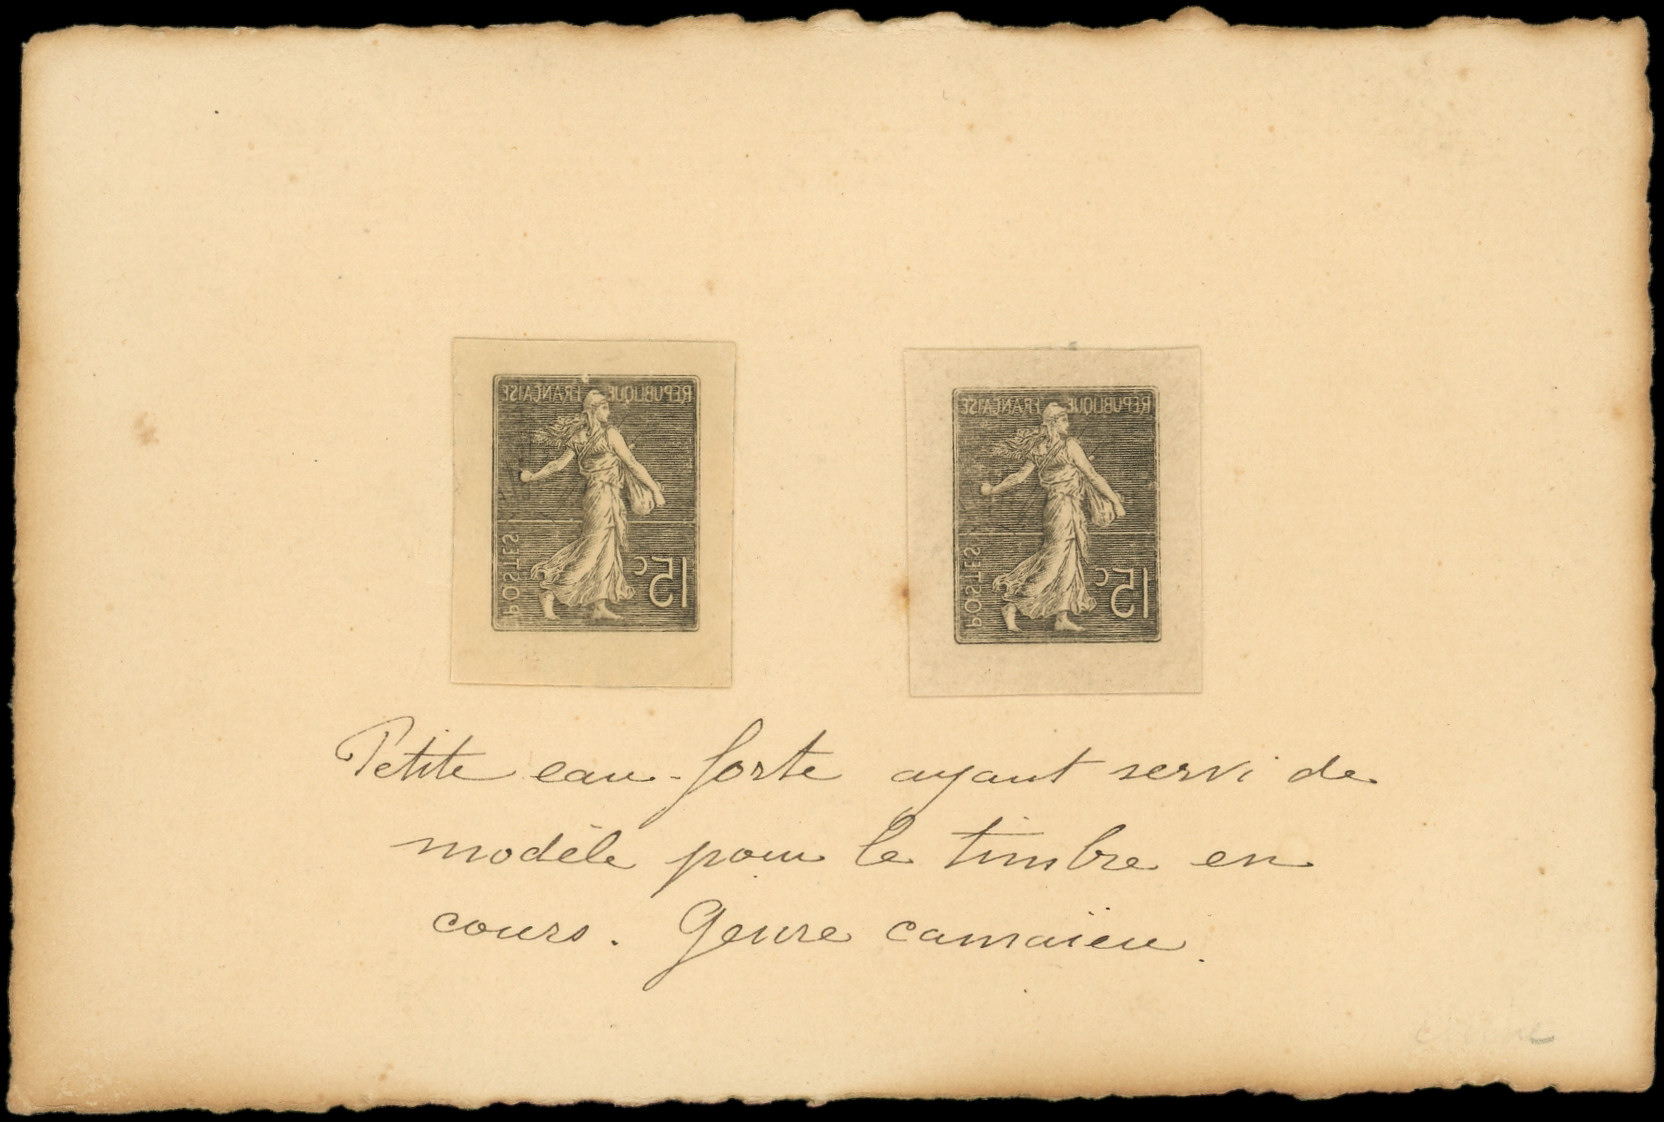 RÉPUBLIQUE FRANÇAISE
POSTES
15c
RÉPUBLIQUE FRANÇAISE
POSTES
15c
Petite eau-forte ayant servi de
modèle pour le timbre en
cours. Genre camaïeu.